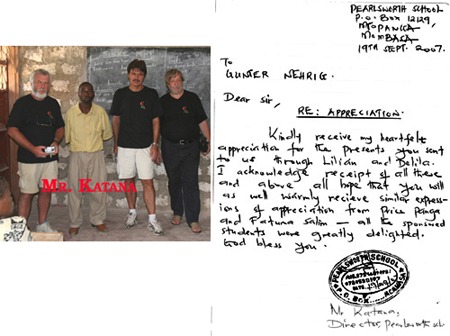 MR. KATANA
PEARLSWORTH SCHOOL
P.O. BOX 12129,
MTOPANGA
MOMBASA
19TH SEPT. 2007.
To
GUNTER NEHRIG.
Dear Sir,
RE: APPRECIATION.
Kindly receive my heartfelt
appreciation for the presents you sent
to us through Lilian and Delila.
I acknowledge receipt of all these
and above all hope that you will
as well warmly recieve similar express-
ions of appreciation from price Panga
and Fatuma Salim — all the sponsored
students were greatly delighted.
God bless you.
PEARLSWORTH SCHOOL
P.O. BOX
MOMBASA
Mr Katana,
Director,